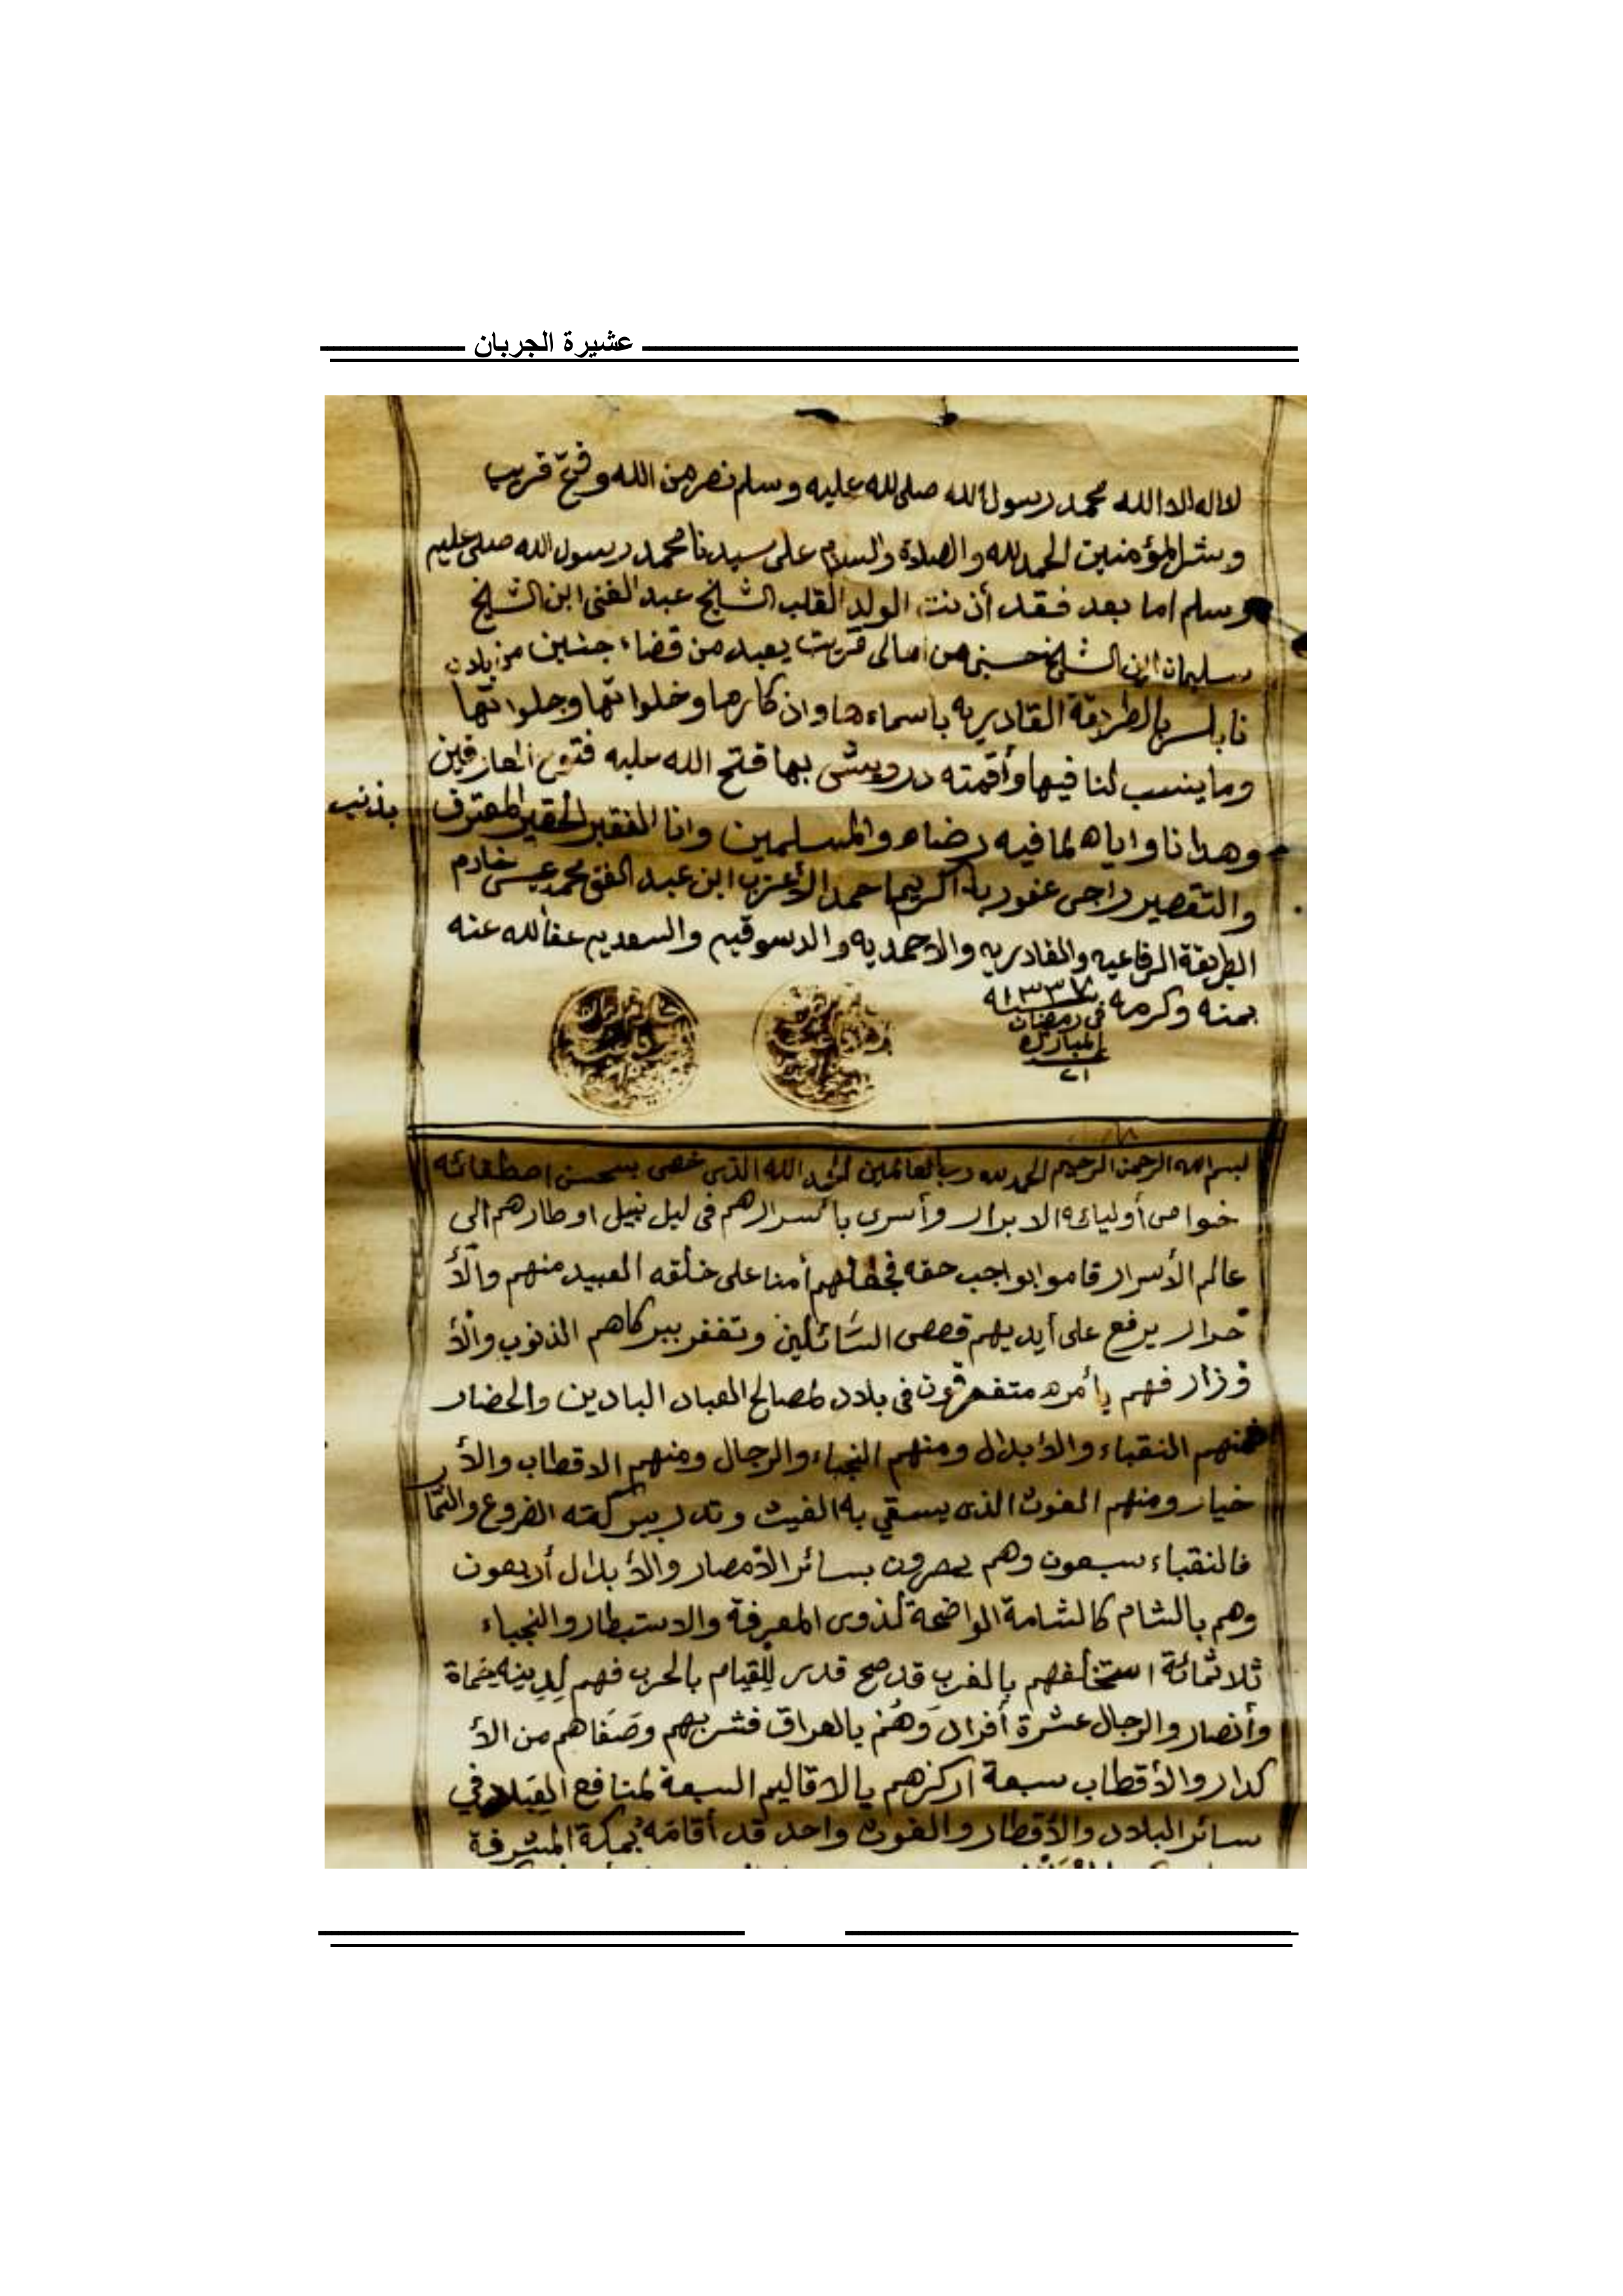 عشيرة الجربان
لااله الا الله محمد رسول الله صلى لله عليه وسلم نصر من الله وفتح قريب
وبشر المؤمنين الحمد لله والصلاة والسلام على سيدنا محمد رسول الله صلى عليه
وسلم اما بعد فقد أذنت الولد القلب الشيخ عبد الغنى ابن الشيخ
سليمان ابن الشيخ حسين من اهالى قريت يعبد من قضاء جنين من بلاد
نابلس بالطريقة القادريه باسماءها واذكارها وخلواتها وجلواتها
وما ينسب لنا فيها وأقمته درويش بها فتح الله عليه فتوح العارفين
وهدانا واياه لما فيه رضاه والمسلمين وانا الفقير الحقير المعترف بذنب
والتقصير راجى عفو ربه الكريم احمد الأعزب ابن عبد الغنى محمد عيسى خادم
الطريقة الرفاعيه والقادريه والاحمديه والدسوقيه والسعديه عفا لله عنه
بمنه وكرمه سنة ١٣٣٧
فى رمضان
المبارك
٢١
بسم الله الرحمن الرحيم الحمد لله رب العالمين الحمد الله الذى خص بحسن اصطفائه
خواص أوليائه الابرار وأسرى بأسرارهم فى ليل نيل اوطارهم الى
عالم الأسرار قاموا بواجب حقه فجعلهم أمنا على خلقه العبيد منهم والأ
حرار يرفع على أيديهم قصص السائلين وتغفر ببركاهم الذنوب والأ
وزار فهم بأمره متفرقون فى بلاد لمصالح العباد البادين والحضار
فمنهم النقباء والأبدال ومنهم النجباء والرجال ومنهم الاقطاب والأ
خيار ومنهم الغوث الذى يسقي به الغيث وتدر ببركته الضروع والثمار
فالنقباء سبعون وهم بسائر الأمصار والأبدال أربعون
وهم بالشام كالشامة الواضحة لذوى المعرفة والنجباء
ثلاثمائة استخلفهم بالغرب قد صح للقيام بالحرب فهم لدينه حماة
وأنصار والرجال عشرة أفراد وهم بالعراق وصفاهم من الأ
كدار والأقطاب سبعة اركزهم بالاقاليم السبعة لمنافع العباد في
سائر البلاد والأقطار والغوث واحد قد أقامه بمكة المشرفة